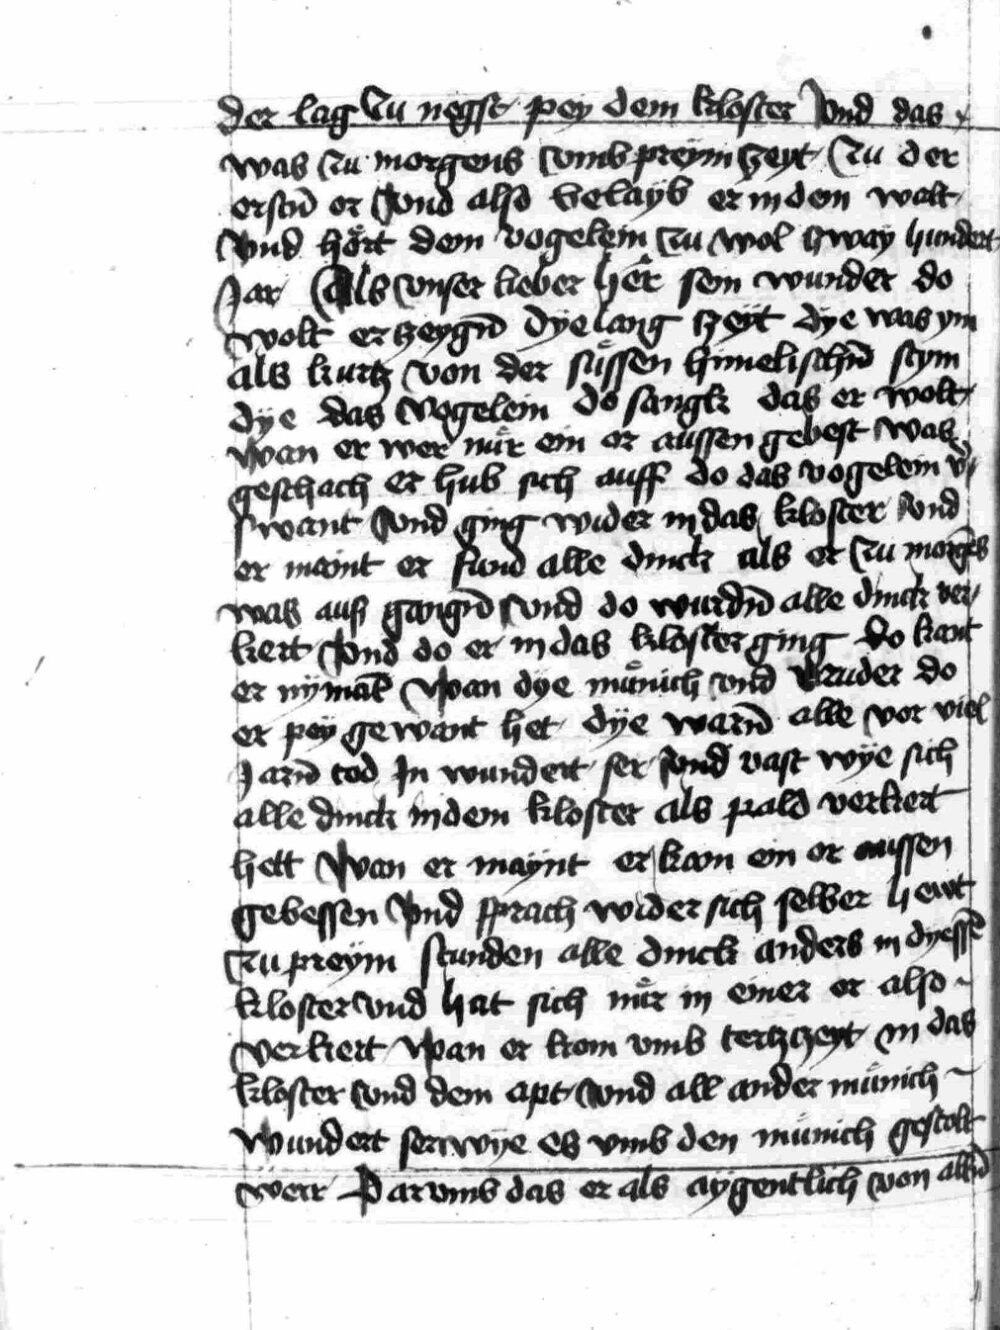 der lag zu negst pey dem kloster Vnd das
was zu morgens vmb preym zeyt zu der
erstn̄ or Vnd also belayb er in dem walt
Vnd hört dem vogelein zu wol zway hundert
Jar Als vnser lieber her sein wunder do
wolt erzeygn̄ dye lang zeyt dye was ym
als kurtz von der süssen himelischn̄ stym
dye das vogelein do sangk das er wolt
wan er wer nür ein or aussen gebest was
geschach er hub sich auff do das vogelein v̄
swant Vnd ging wider in das kloster Vnd
er maint er fund alle dinck als er zu morgēs
was auß gangn̄ Vnd do wurdn̄ alle dinck ver
kert Vnd do er in das kloster ging do kant
er nymāt Wan dye münich vnd bruder do
er pey gewant het dye warn̄ alle vor viel
Jarn̄ tod In wundert ser Vnd vast wye sich
alle dinck in dem kloster als pald verkert
hett Wan er maynt er kam ein or aussen
gebessen Vnd sprach wider sich selber hewt
zu preym stunden alle dinck anders in dyessē
kloster vnd hat sich nür in einer or also
verkert Wan er kom vmb tertzzeyt in das
kloster vnd dem apt vnd all ander münich
wundert ser wye es vmb den münich gestolt
wer Darvmb das er als aygentlich von alln̄